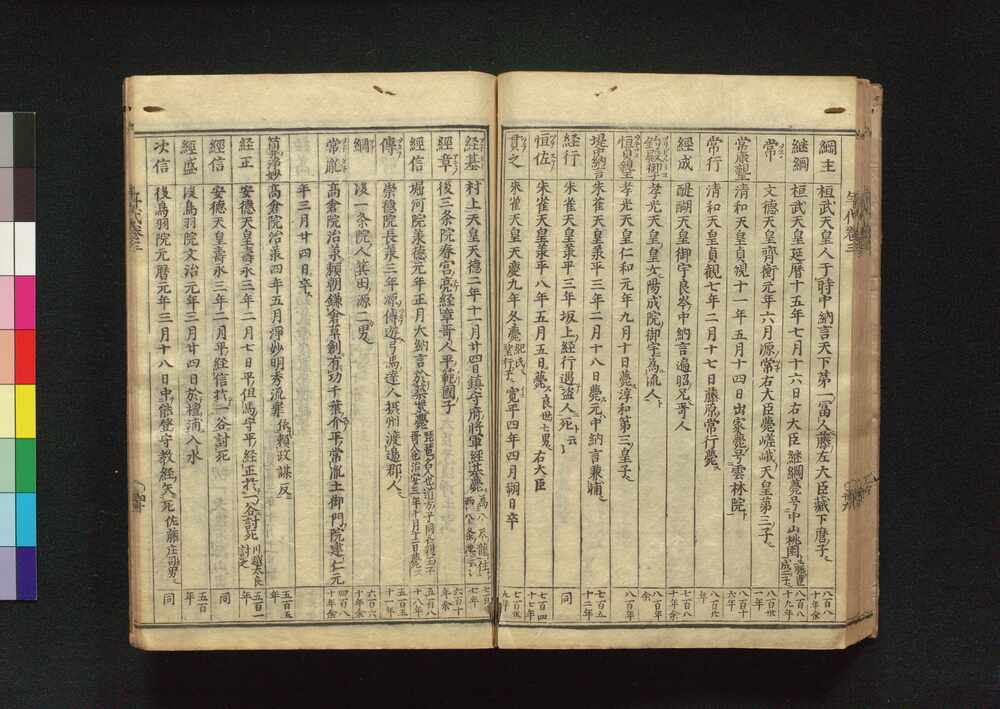 綱主 桓武天皇人于時中納言天下第一冨人藤左大臣藏下麿子 八百八十年余
継綱 桓武天皇延暦十五年七月十六日右大臣継綱薨号中山桃園 八百八十九年
常 文徳天皇齊衡元年六月源常右大臣薨嵯峨天皇第三子 八百卅一年
常康親王 清和天皇貞観十一年五月十四日出家薨号雲林院 八百十六年
常行 清和天皇貞観七年二月十七日藤原常行薨 八百六年
経成 醍醐天皇御宇良岑中納言遍昭兄哥人 七百八十年余
釣殿御子 孝光天皇皇女陽成院御宇為流人 八百年余
恒貞親王 孝光天皇仁和元年九月十日薨淳和第三皇子 八百年
堤中納言 朱雀天皇羕平三年二月十八日薨元中納言兼輔 七百五十二年
経行 朱雀天皇羕平三年坂上経行遇盗人死云 同
恒佐 朱雀天皇羕平八年五月五日薨良世七男右大臣 七百四十七年
貫之 朱雀天皇天慶九年冬薨紀氏 寛平四年四月朔日卒 七百卅九年
経基 村上天皇天德二年十一月廿四日鎮守府将軍経基薨
経章 後三条院春宮亮経章哥人平範國子 六百十年余
経信 堀河院羕德元年正月大納言於
傳 崇德院長羕三年源傳遊弓馬達人摂州渡邉郡人 五百五十一年
綱 後一条院人箕田源二男 六百六十年余
常胤 髙倉院治羕頼朝鎌倉草創有功千葉介平常胤土御門院建仁元 四百八十年余
年三月廿四日卒
筒井浄妙 髙倉院治羕四年五月浄妙明秀流罪依頼政謀反 五百五年
経正 安德天皇壽永三年二月七日平但馬守平経正於一谷討死川越太良討之 五百一年
経信 安德天皇壽永三年二月平経信於一谷討死 同
経盛 後鳥羽院文治元年三月廿四日於檀浦入水 五百年
次信 後鳥羽院元暦元年三月十八日中能登守教経矢死佐藤庄司男 同